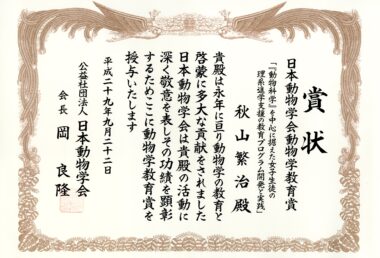 賞状
日本動物学会動物学教育賞
「『動物科学』を中心に据えた女子生徒の
理系進学支援の教育プログラム開発と実践」
秋山繁治殿
貴殿は永年に亘り動物学の教育と
啓蒙に多大な貢献をされました
日本動物学会は貴殿の活動に
深く敬意を表しその功績を顕彰
するためここに動物学教育賞を
授与いたします
平成二十九年九月二十二日
公益社団法人日本動物学会
会長 岡良隆